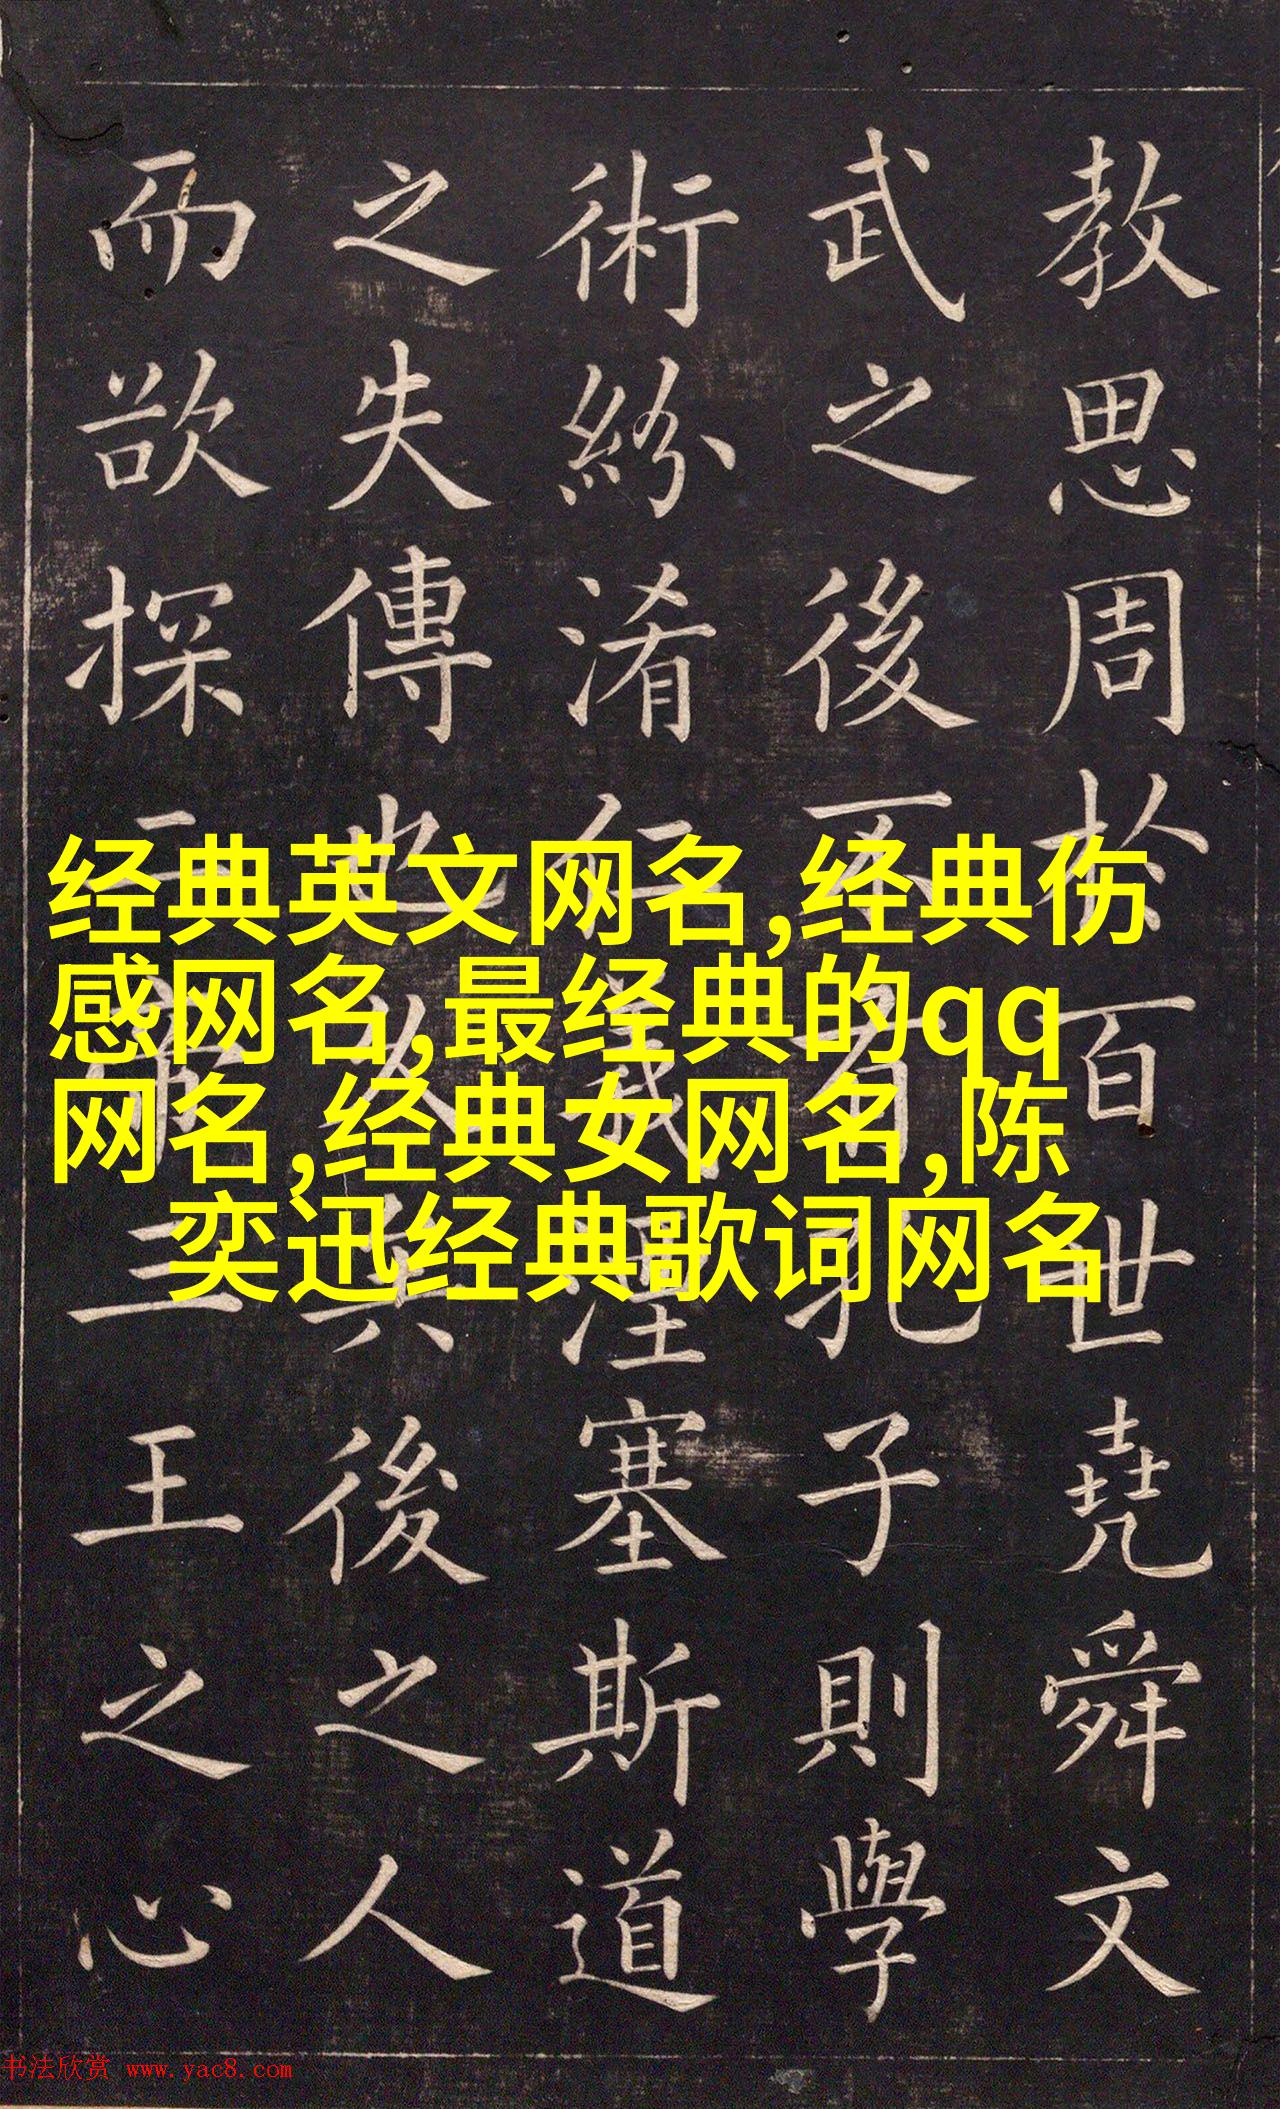 经典英文网名,经典伤
感网名,最经典的qq
网名,经典女网名,陈
奕迅经典歌词网名
教思周於百世堯舜文
武之後不有孔子則學
術紛淆仁義湮塞斯道
之失傳也久後之人
而欲探二帝三王之心
书法欣赏 www.yac8.com